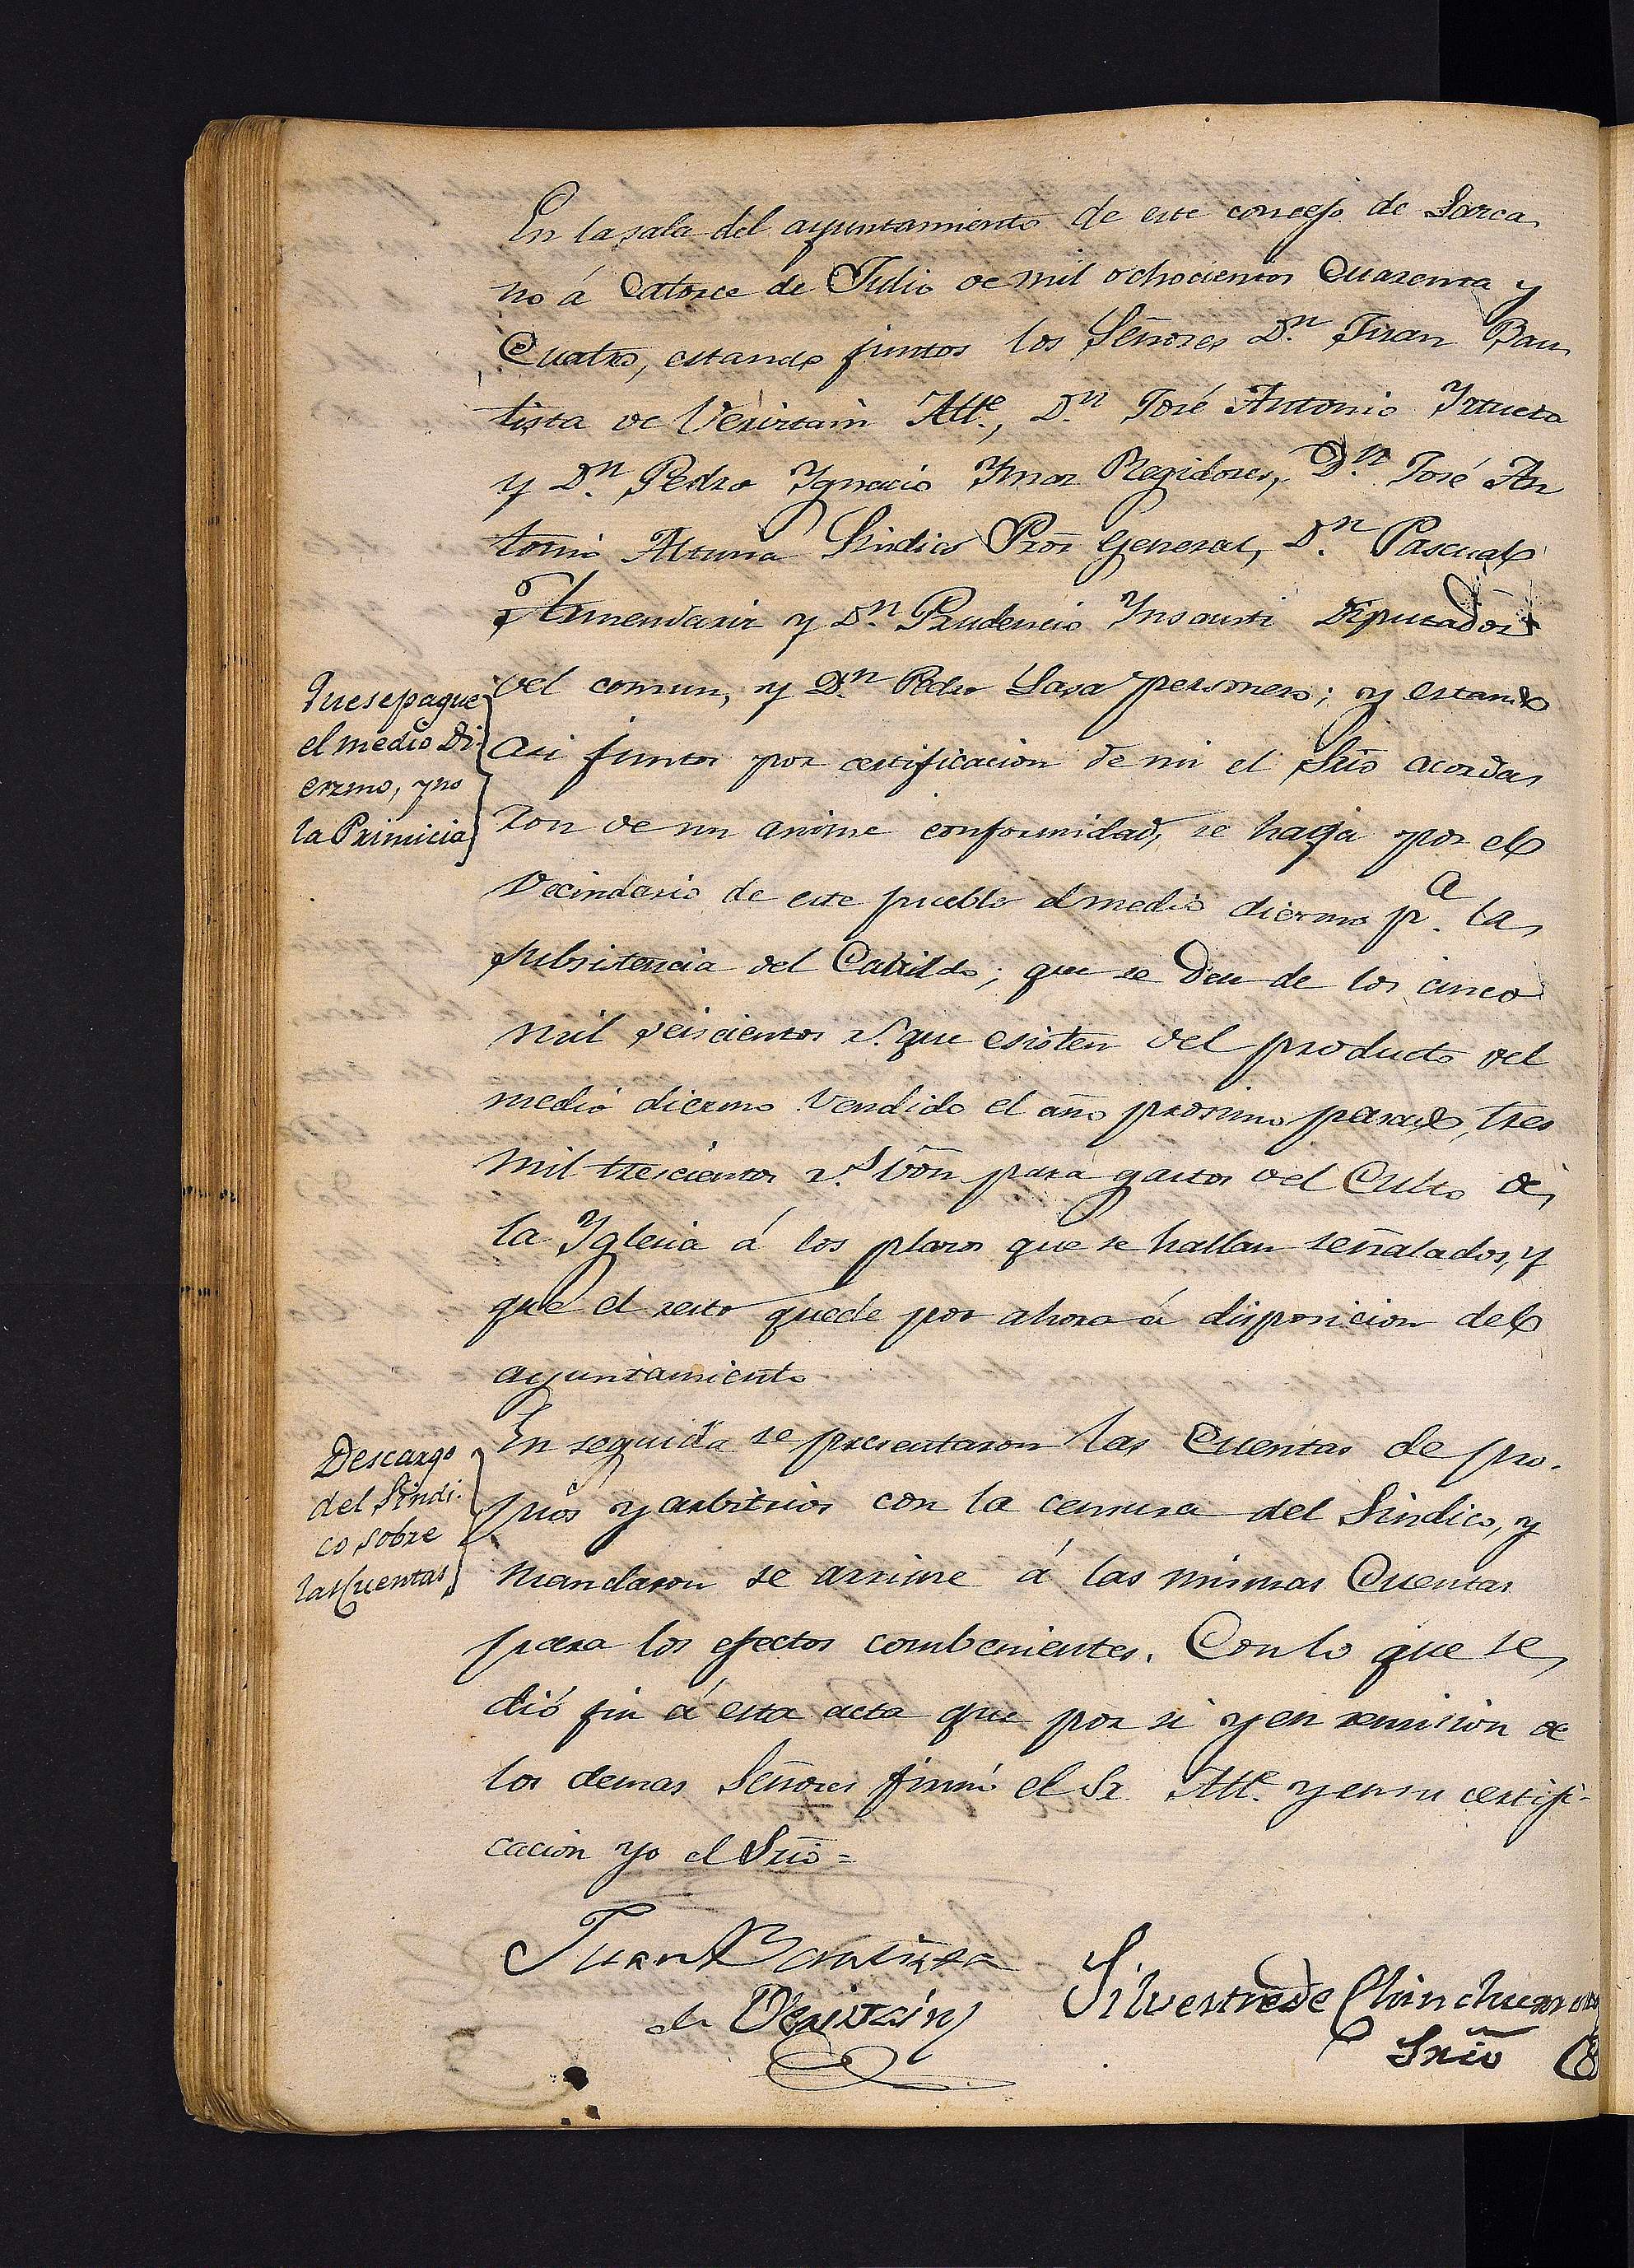 En la sala del ayuntamiento de este concejo de Larca
no á Catorce de Julio de mil ochocientos Quarenta y
Cuatro, estando juntos los Señores Dn. Juan Bau
tista de Veristain Alle., Dn. José Antonio Yrtueta
y Dn. Pedro Ygnacio Ymaz Regidores, Dn. José An
tonio Altuna Sindico Pror. General, Dn. Pascual
Armendariz y Dn. Prudencio Ynsausti Diputados
Que se pague
el medio Di-
ezmo, y no
la Primicia
del comun, y Dn. Pedro Lasa personero; y estando
asi juntos por certificacion de mi el Srio acorda
ron de un anime conformidad, se haga por el
Vecindario de este pueblo el medio diezmo pa. la
subsitencia del Cavildo; que se den de los cinco
mil seiscientos rs. que esisten del producto del
medio diezmo vendido el año prosimo pasado, tres
mil trescientos rs. von para gastos del Culto de
la Yglesia á los plazos que se hallan señalados, y
que el resto quede por ahora á disposicion del
ayuntamiento
Descargo
del Sindi-
co sobre
las Cuentas
En seguida se presentaron las Cuentas de pro-
pios y arbitrios con la censura del Sindico, y
mandaron se arrime á las mismas Cuentas
para los efectos combenientes. Con lo que se
dió fin á esta acta que por si y en remision de
los demas Señores firmó el Sr. Alle. y en su certifi-
cacion yo el Srio =
Juan Bautista
de Veristain
Silvestre de Chinchurreta
Srio